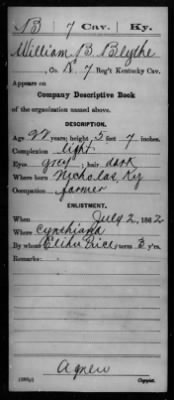 B 7 Cav. Ky.
William B. Blythe
, Co. K, 7 Reg't Kentucky Cav.
Appears on
Company Descriptive Book
of the organization named above.
DESCRIPTION.
Age 22 years; height 5 feet 7 inches.
Complexion light
Eyes grey; hair dark
Where born Nicholas, Ky
Occupation farmer
ENLISTMENT.
When July 2, 1862
Where Cynthiana
By whom Elihu Rice; term 3 y'rs.
Remarks:
Agnew
Copyist.